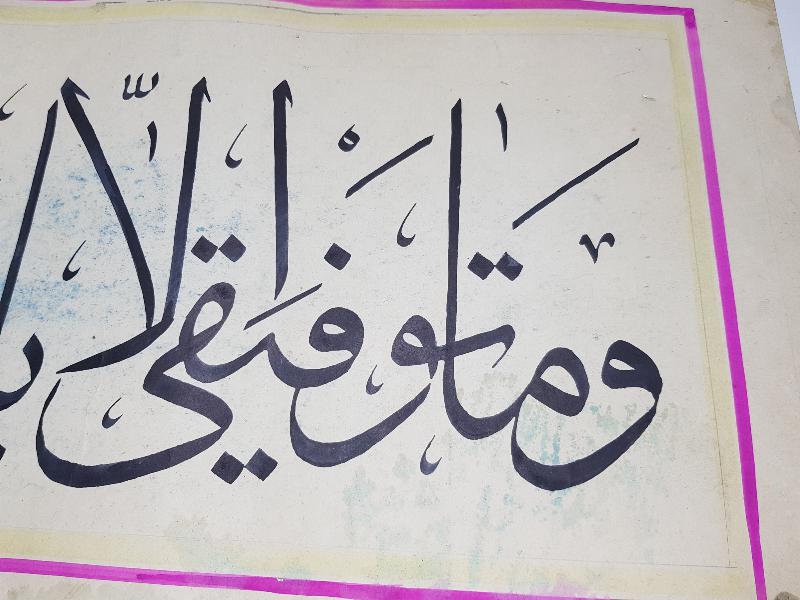 وما توفيقى إلّا